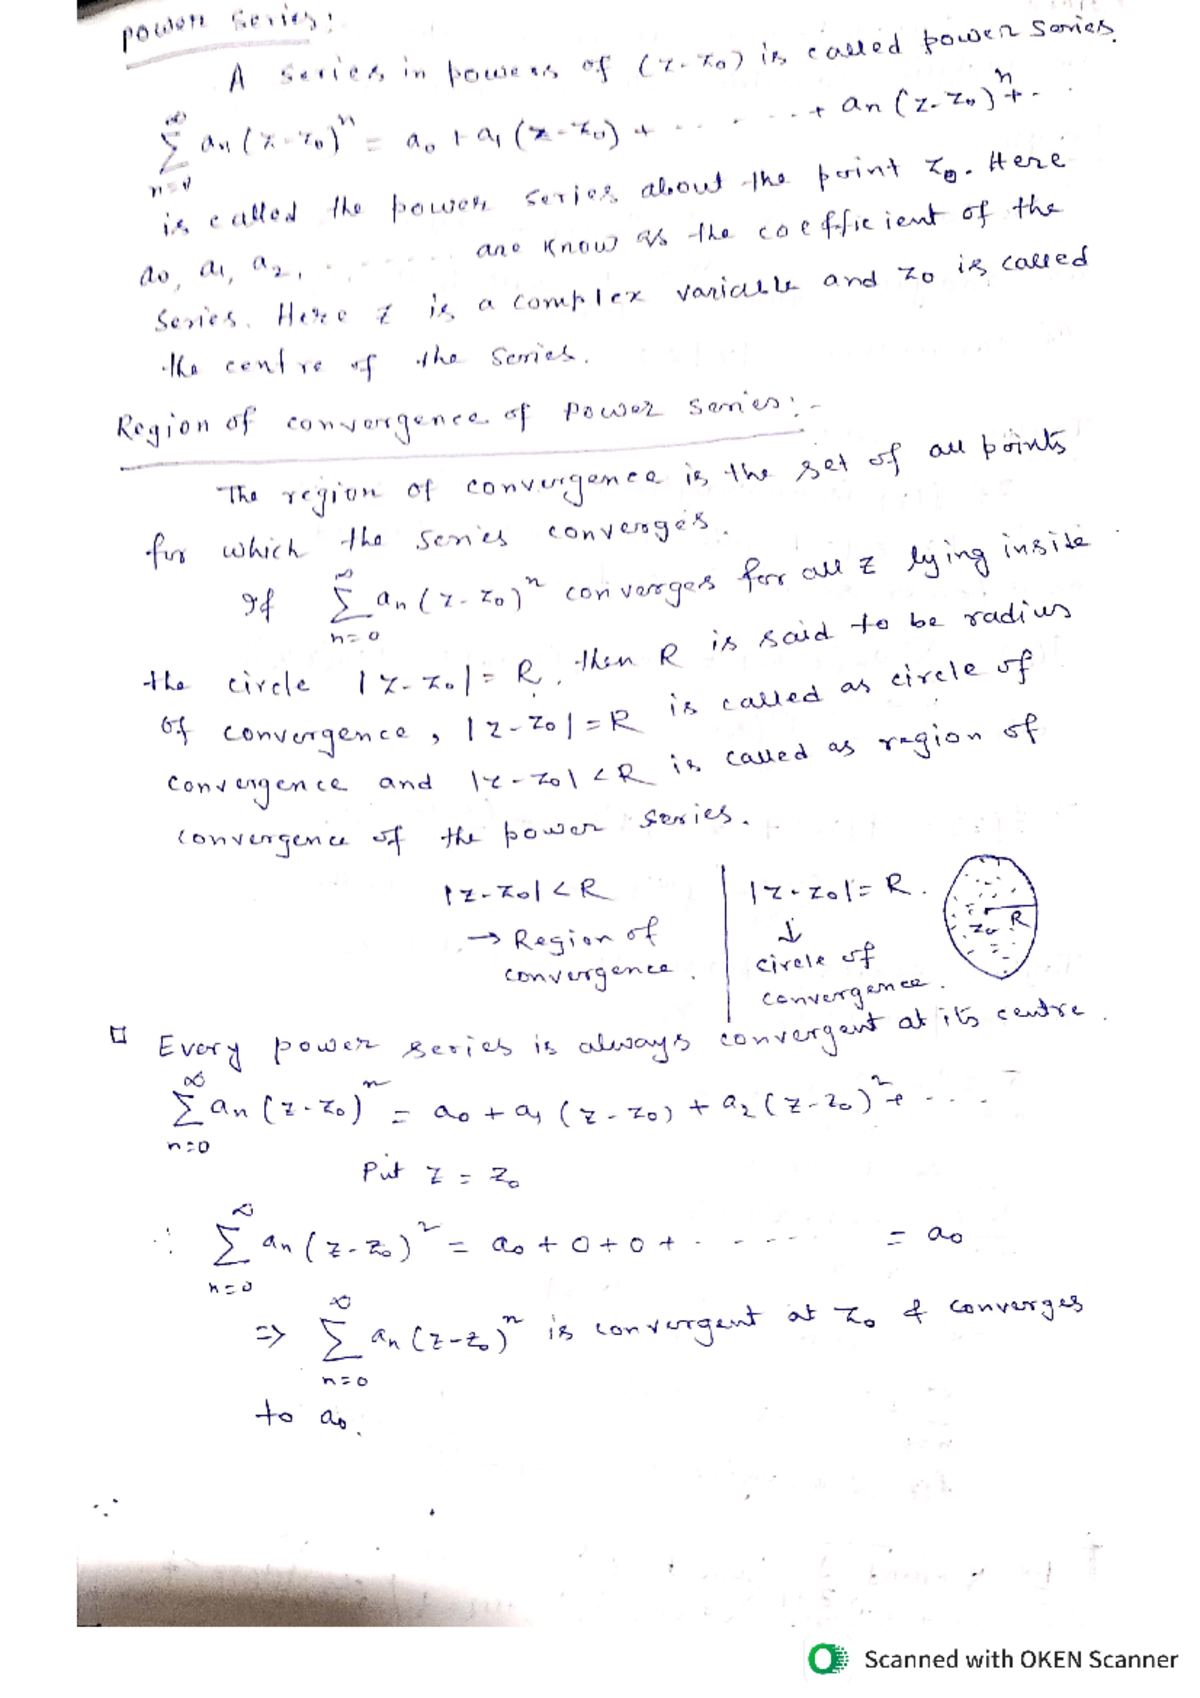 Power Series:
A series in powers of (z-z₀) is called power series.
∞ ∑ n=0 aₙ(z-z₀)ⁿ = a₀ + a₁(z-z₀) + ....... + aₙ(z-z₀)ⁿ + ...
is called the power series about the point z₀. Here
a₀, a₁, a₂, ....... are know as the coefficient of the
Series. Here z is a complex variable and z₀ is called
the centre of the series.
Region of convergence of power series:-
The region of convergence is the set of all points
for which the series converges.
If ∞ ∑ n=0 aₙ(z-z₀)ⁿ converges for all z lying inside
the circle |z-z₀| = R, then R is said to be radius
of convergence, |z-z₀| = R is called as circle of
convergence and |z-z₀| < R is called as region of
convergence of the power series.
|z-z₀| < R
→ Region of
convergence.
|z-z₀| = R.
↓
circle of
convergence.
z₀ R
□ Every power series is always convergent at its centre.
∞ ∑ n=0 aₙ(z-z₀)ⁿ = a₀ + a₁(z-z₀) + a₂(z-z₀)² + ....
Put z = z₀
∴ ∞ ∑ n=0 aₙ(z-z₀)² = a₀ + 0 + 0 + ..... = a₀
⇒ ∞ ∑ n=0 aₙ(z-z₀)ⁿ is convergent at z₀ & converges
to a₀.
Scanned with OKEN Scanner